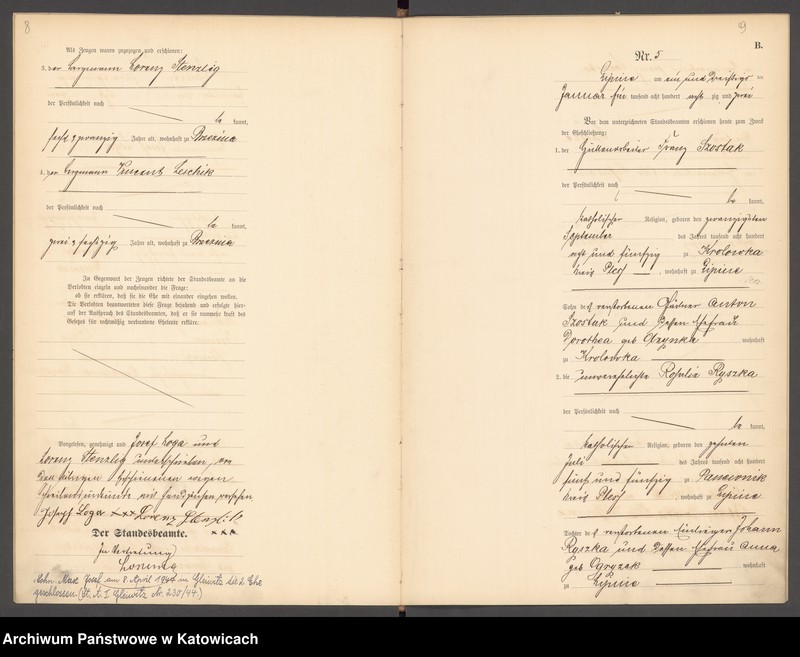 8
Als Zeugen waren zugezogen und erschienen:
3. der Bergmann Lorenz Stenzlig
der Persönlichkeit nach
be kannt,
sechs & zwanzig Jahre alt, wohnhaft zu Brzezina
4. der Bergmann Vincent Leschik
der Persönlichkeit nach
be kannt,
zwei & sechszig Jahre alt, wohnhaft zu Brzezina
In Gegenwart der Zeugen richtete der Standesbeamte an die
Verlobten einzeln und nacheinander die Frage:
ob sie erklären, daß sie die Ehe mit einander eingehen wollen.
Die Verlobten beantworteten diese Frage bejahend und erfolgte hier-
auf der Ausspruch des Standesbeamten, daß er sie nunmehr kraft des
Gesetzes für rechtmäßig verbundene Eheleute erkläre.
Vorgelesen, genehmigt und Josef Loga und
Lorenz Stenzlig unterschrieben, von
den übrigen Erschienenen wegen
Schreibensunkunde mit Handzeichen versehen
Joseph Loga +++ Lorenz
Der Standesbeamte. +++
In Vertretung
am 8. April 1944 in Gleiwitz die 2. Ehe
geschlossen. (St. A. I Gleiwitz Nr. 230/44.)
9
B.
Nr. 5
Lipine am ein und dreißigsten
Januar tausend acht hundert acht zig und zwei
Vor dem unterzeichneten Standesbeamten erschienen heute zum Zweck
der Eheschließung:
1. der Hüttenarbeiter Franz Szostak
der Persönlichkeit nach
be kannt,
katholischer Religion, geboren den zwanzigsten
September des Jahres tausend acht hundert
acht und fünfzig zu Krolowka
Kreis Pless, wohnhaft zu Lipine
Sohn des verstorbenen Gärtner Anton
Szostak und dessen Ehefrau
Dorothea geb. wohnhaft
zu Krolowka
2. die unverehelichte Rosalie Ryszka
der Persönlichkeit nach
be kannt,
katholischer Religion, geboren den zehnten
Juli des Jahres tausend acht hundert
fünf und fünfzig zu
Kreis Pless, wohnhaft zu Lipine
Tochter des verstorbenen Einlieger Johann
Ryszka und dessen Ehefrau Anna
geb. Ogryzek wohnhaft
zu Lipine
Archiwum Państwowe w Katowicach